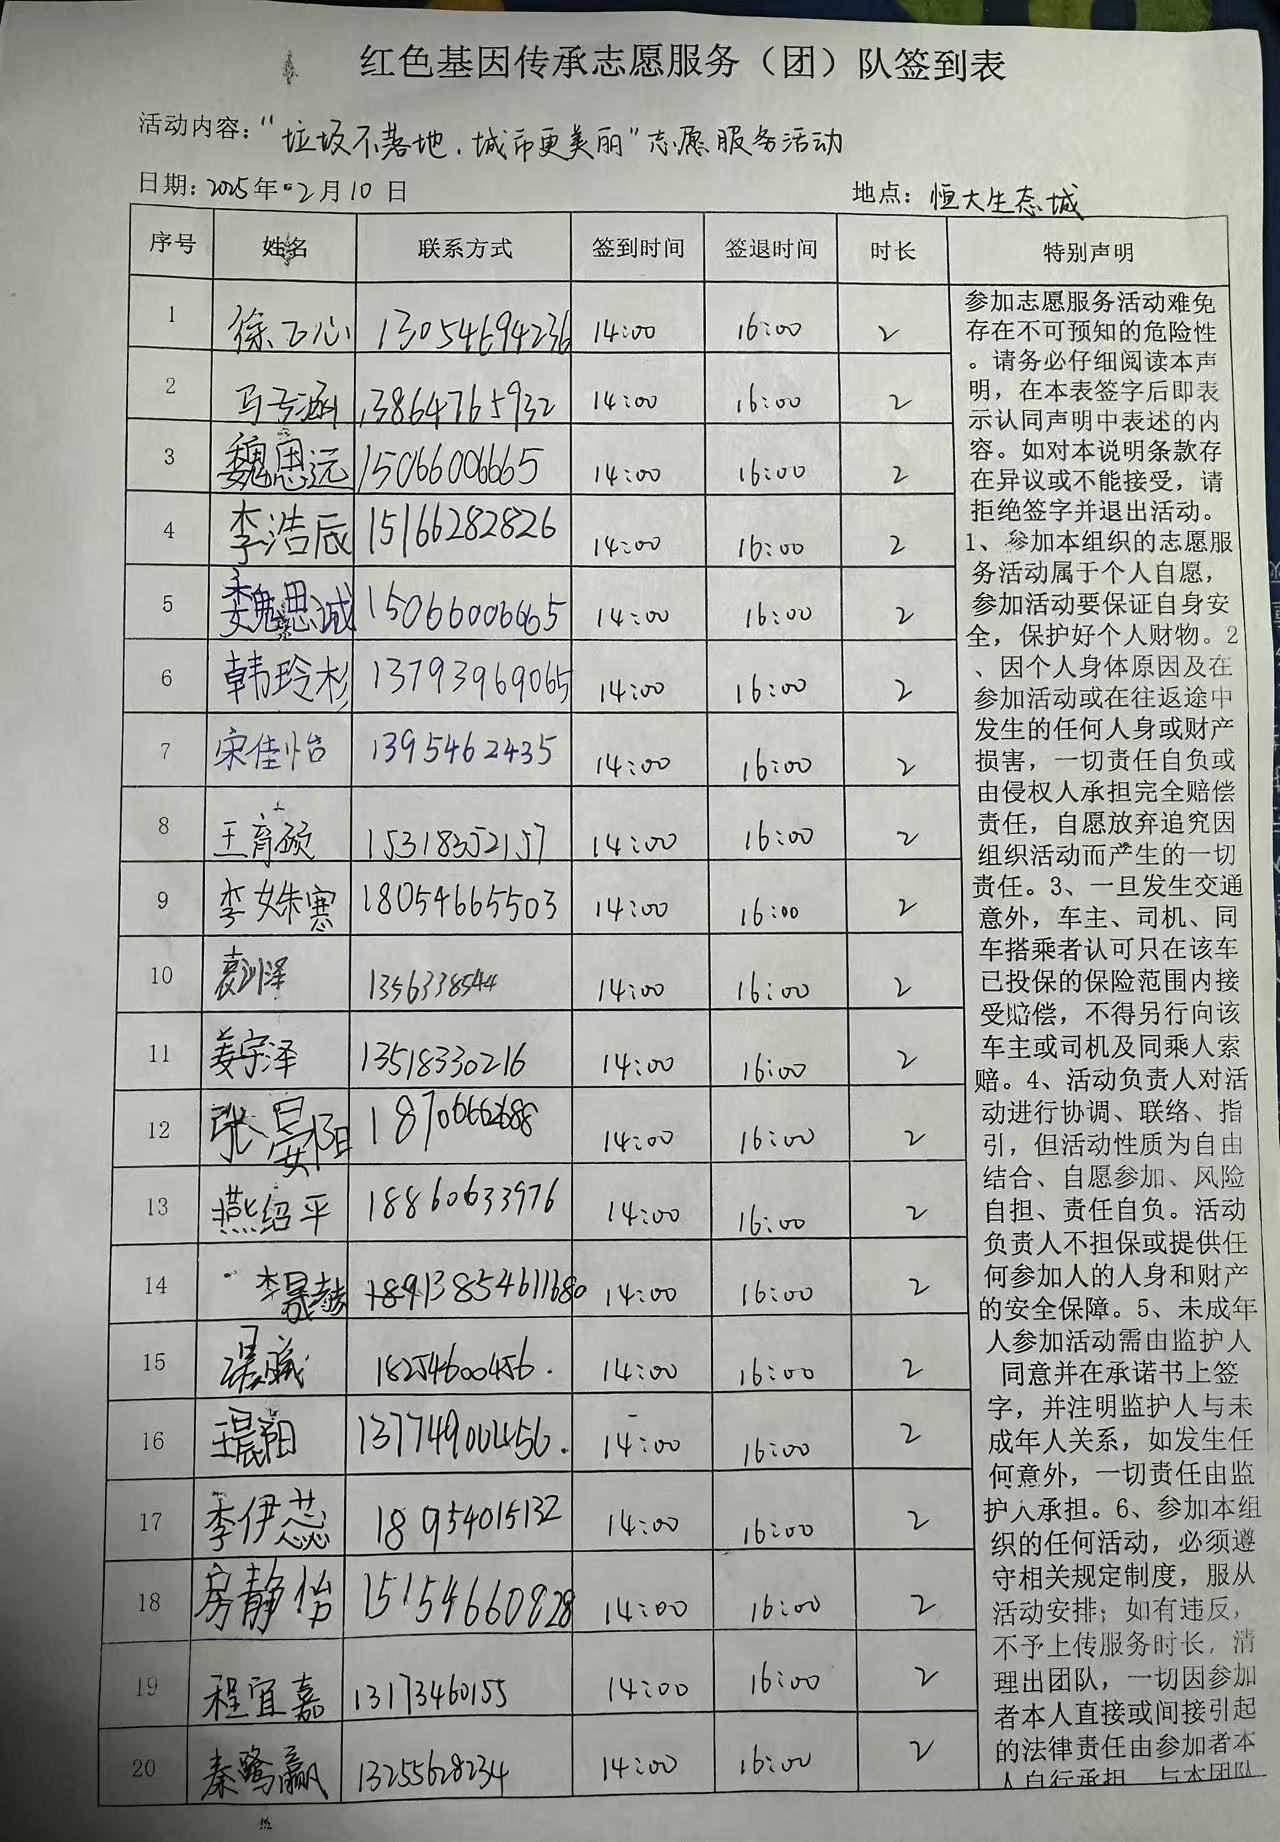 红色基因传承志愿服务（团）队签到表
活动内容："垃圾不落地，城市更美丽"志愿服务活动
日期：2025年2月10日 地点：恒大生态城
序号 姓名 联系方式 签到时间 签退时间 时长 特别声明
1 徐 心 13054694236 14:00 16:00 2
2 马 涵 13864765932 14:00 16:00 2
3 魏思远 15066006665 14:00 16:00 2
4 李浩辰 15166282826 14:00 16:00 2
5 魏思诚 15066006665 14:00 16:00 2
6 韩玲杉 13793969065 14:00 16:00 2
7 宋佳怡 1395462435 14:00 16:00 2
8 王育硕 15318352157 14:00 16:00 2
9 李姝寒 18054665503 14:00 16:00 2
10 袁 泽 1356338544 14:00 16:00 2
11 姜宇泽 13518330216 14:00 16:00 2
12 张晏阳 18706662688 14:00 16:00 2
13 燕绍平 18860633976 14:00 16:00 2
14 李晟赫 13854611680 14:00 16:00 2
15 18254600456. 14:00 16:00 2
16 王晨阳 13774900456. 14:00 16:00 2
17 李伊蕊 18954015132 14:00 16:00 2
18 房静怡 15154660828 14:00 16:00 2
19 程宜嘉 13173460155 14:00 16:00 2
20 秦鹭赢 13255628234 14:00 16:00 2
参加志愿服务活动难免
存在不可预知的危险性
。请务必仔细阅读本声
明，在本表签字后即表
示认同声明中表述的内
容。如对本说明条款存
在异议或不能接受，请
拒绝签字并退出活动。
1、参加本组织的志愿服
务活动属于个人自愿，
参加活动要保证自身安
全，保护好个人财物。2
、因个人身体原因及在
参加活动或在往返途中
发生的任何人身或财产
损害，一切责任自负或
由侵权人承担完全赔偿
责任，自愿放弃追究因
组织活动而产生的一切
责任。3、一旦发生交通
意外，车主、司机、同
车搭乘者认可只在该车
已投保的保险范围内接
受赔偿，不得另行向该
车主或司机及同乘人索
赔。4、活动负责人对活
动进行协调、联络、指
引，但活动性质为自由
结合、自愿参加、风险
自担、责任自负。活动
负责人不担保或提供任
何参加人的人身和财产
的安全保障。5、未成年
人参加活动需由监护人
同意并在承诺书上签
字，并注明监护人与未
成年人关系，如发生任
何意外，一切责任由监
护人承担。6、参加本组
织的任何活动，必须遵
守相关规定制度，服从
活动安排；如有违反，
不予上传服务时长，清
理出团队，一切因参加
者本人直接或间接引起
的法律责任由参加者本
人自行承担，与本团队